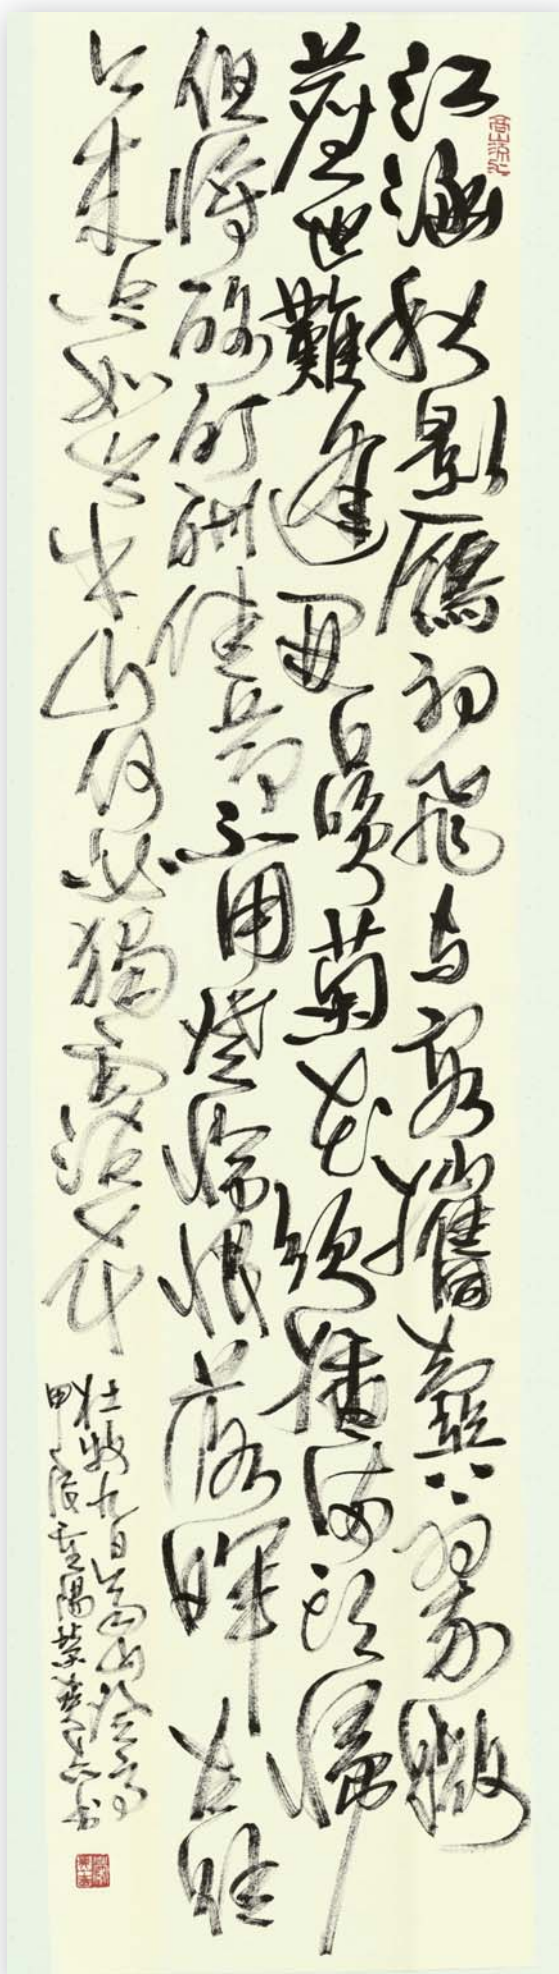 高山流水
江涵秋影雁初飛与客攜壺上翠微
塵世難逢開口笑菊花須插滿頭歸
但將酩酊酬佳節不用登臨恨落暉古往
今來只如此牛山何必獨霑衣
杜牧九日齊山登高
甲辰重陽 书